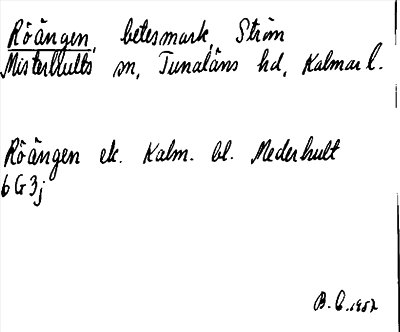 Röängen, betesmark, Ström
Misterhults sn, Tunaläns hd, Kalmar l.
Röängen ek. Kalm. bl. Mederhult
6 G 3 j
B. G. 1952